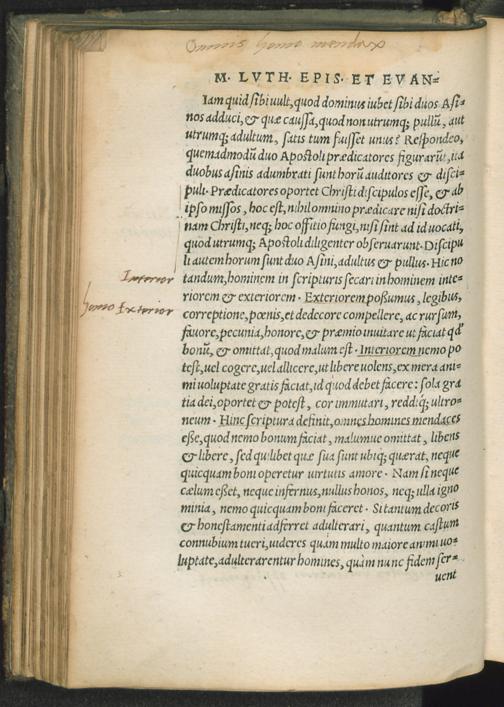 M. LVTH. EPIS. ET EVAN=
Iam quid sibi uult, quod dominus iubet sibi duos Asi=
nos adduci, & quæ caussa, quod non utrumq; pullũ, aut
utrumq; adultum, satis tum fuisset unus? Respondeo,
quemadmodũ duo Apostoli prædicatores figurarũt, ita
duobus asinis adumbrati sunt horũ auditores & disci=
puli. Prædicatores oportet Christi discipulos esse, & ab
ipso missos, hoc est, nihil omnino prædicare nisi doctri=
nam Christi, neq; hoc offitio fungi, nisi sint ad id uocati,
quod utrumq; Apostoli diligenter obseruarunt. Discipu
li autem horum sunt duo Asini, adultus & pullus. Hic no
Interior
tandum, hominem in scripturis secari in hominem inte=
riorem & exteriorem. Exteriorem possumus, legibus,
homo Exterior
correptione, pœnis, et dedecore compellere, ac rursum,
fauore, pecunia, honore, & præmio inuitare ut faciat qđ
bonũ, & omittat, quod malum est. Interiorem nemo po
test, uel cogere, uel allicere, ut libere uolens, ex mera ani=
mi uoluptate gratis faciat, id quod debet facere: sola gra
tia dei, oportet & potest, cor immutari, reddiq; ultro=
neum. Hinc scriptura definit, omnes homines mendaces
esse, quod nemo bonum faciat, malumue omittat, libens
& libere, sed quilibet quæ sua sunt ubiq; quærat, neque
quicquam boni operetur uirtutis amore. Nam si neque
cælum esset, neque infernus, nullus honos, neq; ulla igno
minia, nemo quicquam boni faceret. Si tantum decoris
& honestamenti adferret adulterari, quantum castum
connubium tueri, uideres quàm multo maiore animi uo=
luptate, adulterarentur homines, quàm nunc fidem ser=
uent